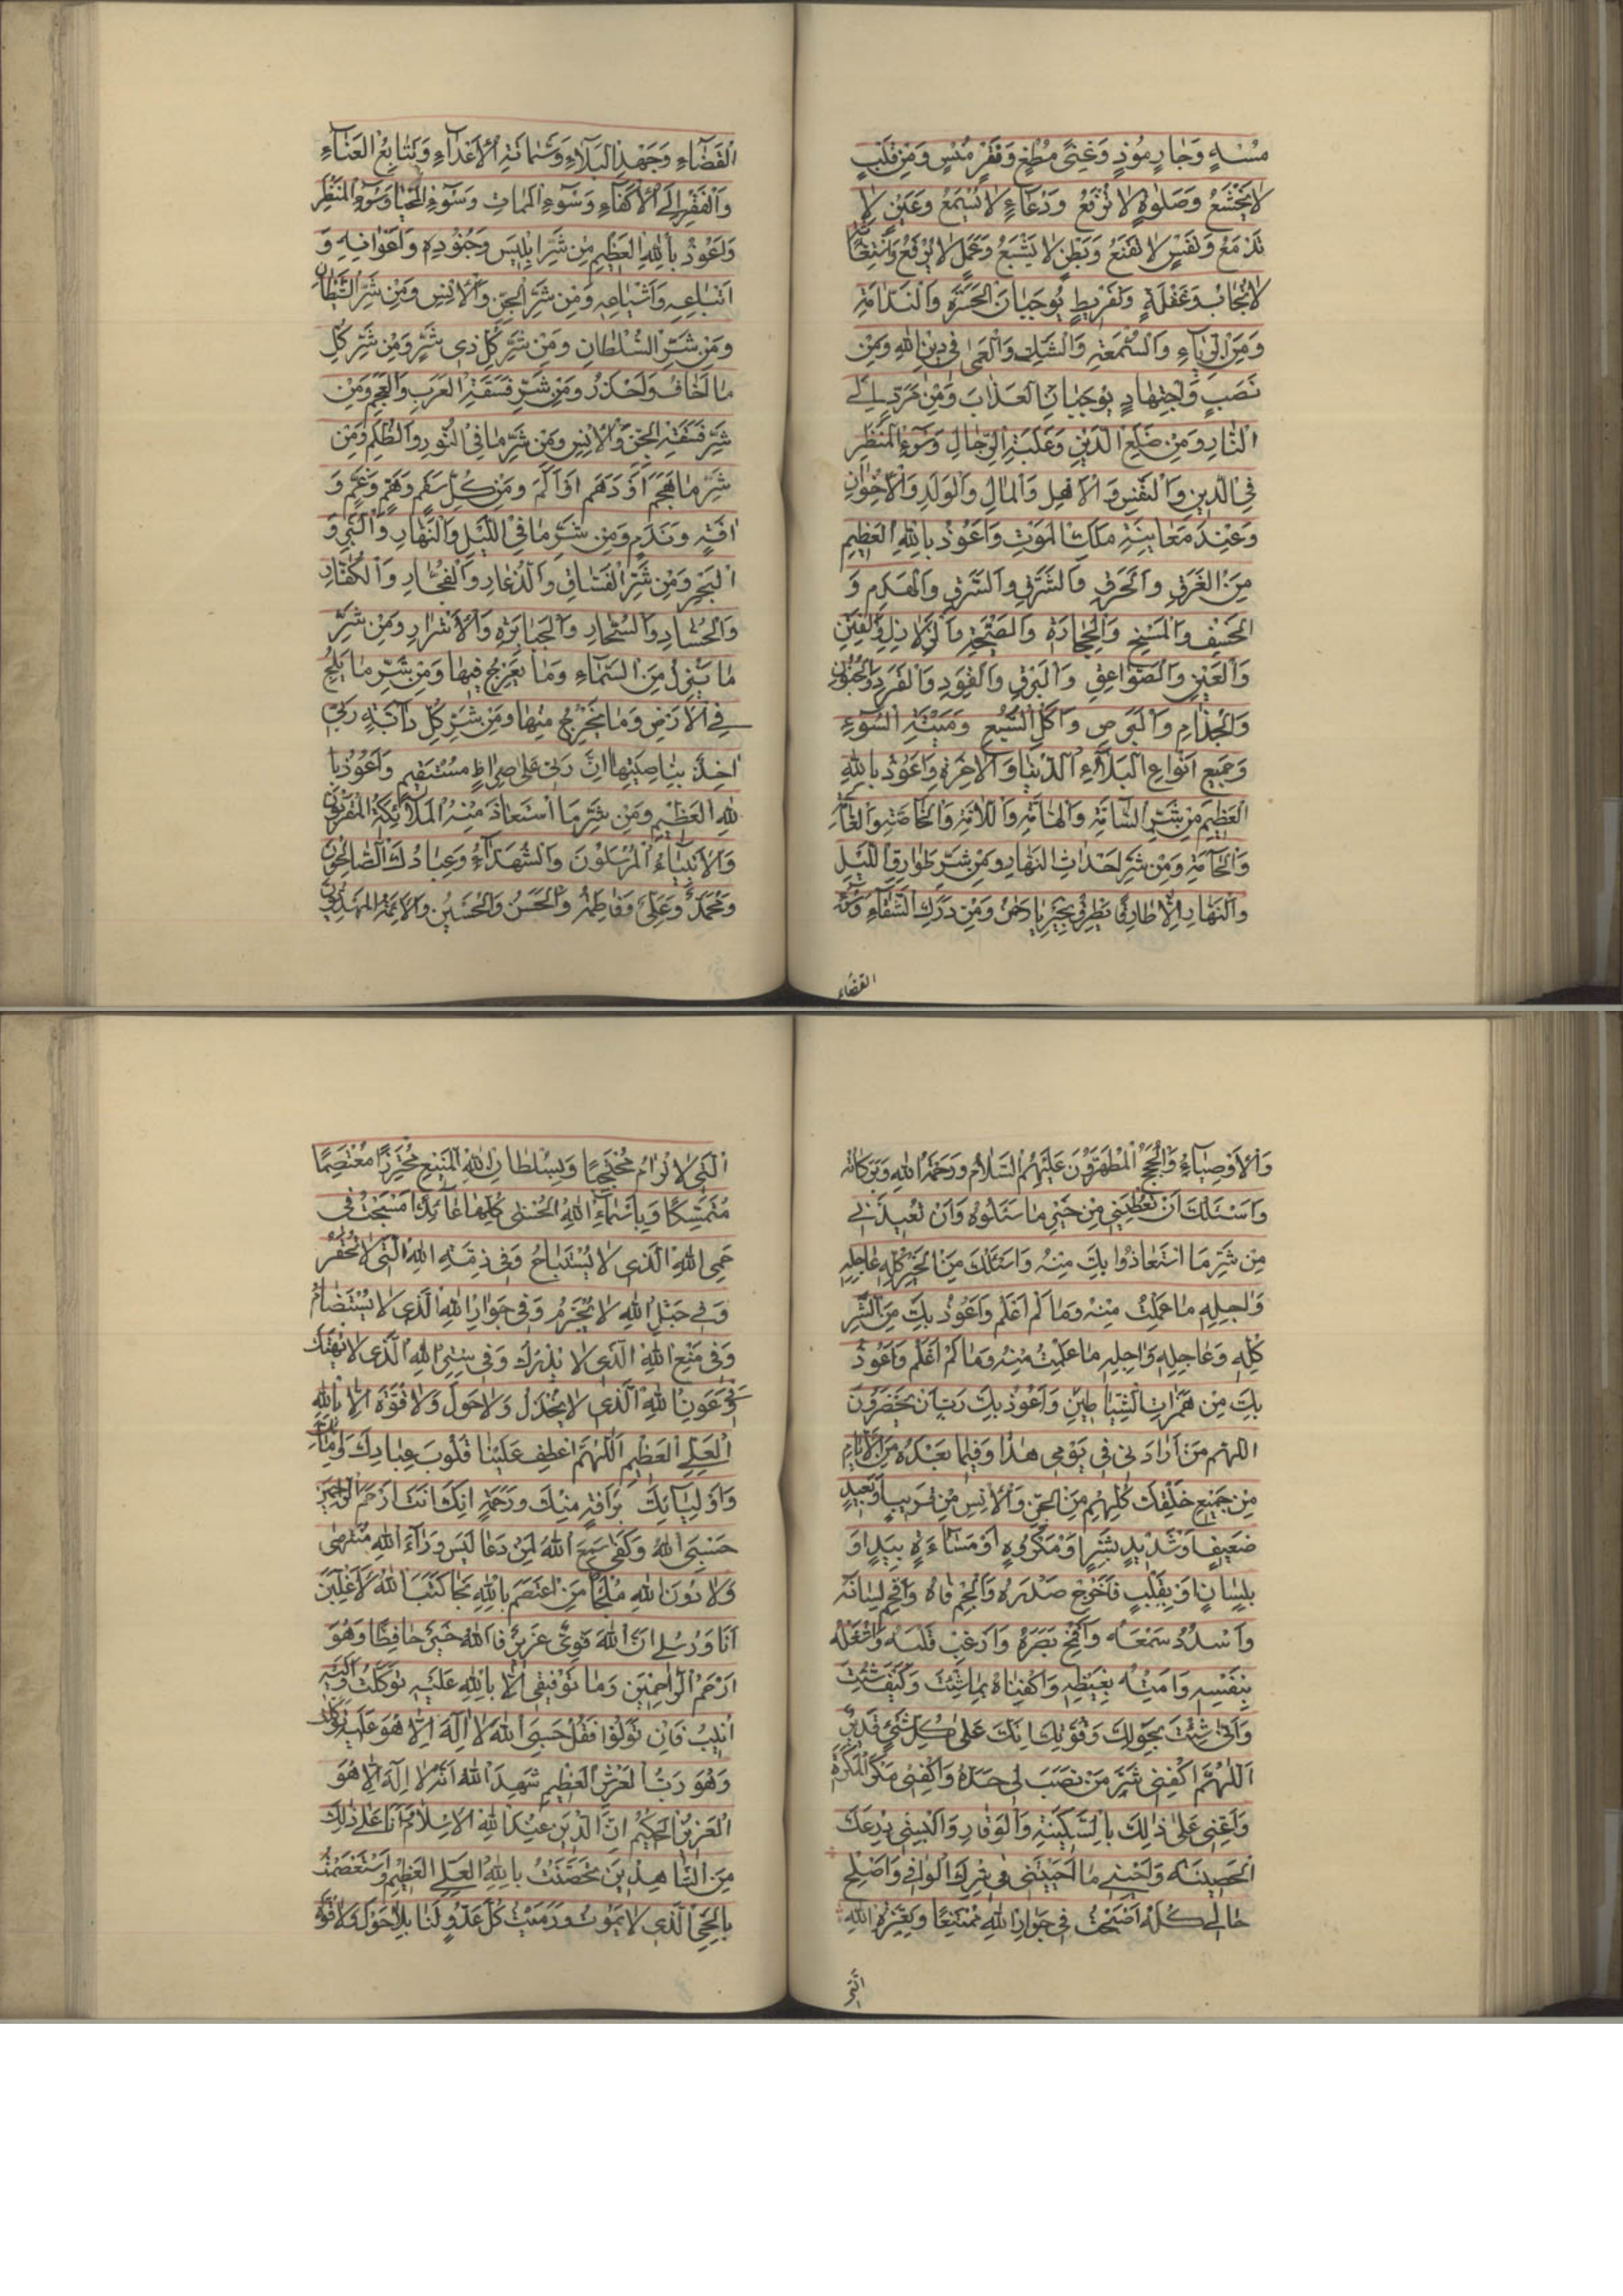 مُسْلِهٍ وَجَارٍ مُوذٍ وَغِنًى مُطْغٍ وَفَقْرٍ مُنْسٍ وَمِنْ قَلْبٍ
لَا يَخْشَعُ وَصَلٰوةٍ لَا تُرْفَعُ وَدُعَآءٍ لَا يُسْمَعُ وَعَيْنٍ لَا
تَدْمَعُ وَنَفْسٍ لَا تَقْنَعُ وَبَطْنٍ لَا يَشْبَعُ وَعَمَلٍ لَا يُرْفَعُ
لَا يُجَابُ وَغَفْلَةٍ وَتَفْرِيطٍ يُوجِبَانِ الْحَسْرَةَ وَالنَّدَامَةَ
وَمِنَ الرِّيَآءِ وَالسُّمْعَةِ وَالشَّكِّ وَالْعَمٰى فِى دِينِ اللهِ وَمِنْ
نَصَبٍ وَاجْتِهَادٍ يُوجِبَانِ الْعَذَابَ وَمِنْ مَرَدٍّ اِلٰى
النَّارِ وَمِنْ ضَلَعِ الدَّيْنِ وَغَلَبَةِ الرِّجَالِ وَسُوۤءِ الْمَنْظَرِ
فِى الدِّينِ وَالنَّفْسِ وَالْاَهْلِ وَالْمَالِ وَالْوَلَدِ وَالْاِخْوَانِ
وَعِنْدَ مُعَايَنَةِ مَلَكِ الْمَوْتِ وَاَعُوذُ بِاللهِ الْعَظِيمِ
مِنَ الْغَرَقِ وَالْحَرَقِ وَالشَّرَقِ وَالسَّرَقِ وَالْهَدَمِ وَ
الْخَسْفِ وَالْمَسْخِ وَالْحِجَارَةِ وَالصَّيْحَةِ وَالزَّلَازِلِ وَالْفِتَنِ
وَالْعَيْنِ وَالصَّوَاعِقِ وَالْبَرْقِ وَالْقَوَدِ وَالْقَرَدِ وَالْجُنُونِ
وَالْجُذَامِ وَالْبَرَصِ وَاَكْلِ السَّبُعِ وَمِيْتَةِ السُّوۤءِ
وَجَمِيعِ اَنْوَاعِ الْبَلَآءِ الدُّنْيَا وَالْاٰخِرَةِ وَاَعُوذُ بِاللهِ
الْعَظِيمِ مِنْ شَرِّ السَّآمَّةِ وَالْهَآمَّةِ وَاللَّآمَّةِ وَالْخَآصَّةِ وَالْعَآمَّةِ
وَالْحَآمَّةِ وَمِنْ شَرِّ اَحْدَاثِ النَّهَارِ وَمِنْ شَرِّ طَوَارِقِ اللَّيْلِ
وَالنَّهَارِ اِلَّا طَارِقٍ يَطْرُقُ بِخَيْرٍ يَا رَحْمٰنُ وَمِنْ دَرَكِ الشَّقَآءِ وَسُوۤءِ
القضاء
الْقَضَآءِ وَجَهْدِ الْبَلَآءِ وَشَمَاتَةِ الْاَعْدَآءِ وَتَتَابُعِ الْعَنَآءِ
وَالْفَقْرِ اِلَى الْاَكْفَآءِ وَسُوۤءِ الْمَمَاتِ وَسُوۤءِ الْمَحْيَا وَسُوۤءِ الْمَنْظَرِ
وَاَعُوذُ بِاللهِ الْعَظِيمِ مِنْ شَرِّ اِبْلِيسَ وَجُنُودِهِ وَاَعْوَانِهِ وَ
اَتْبَاعِهِ وَاَشْيَاعِهِ وَمِنْ شَرِّ الْجِنِّ وَالْاِنْسِ وَمِنْ شَرِّ الشَّيْطَانِ
وَمِنْ شَرِّ السُّلْطَانِ وَمِنْ شَرِّ كُلِّ ذِى شَرٍّ وَمِنْ شَرِّ كُلِّ
مَا اَخَافُ وَاَحْذَرُ وَمِنْ شَرِّ فَسَقَةِ الْعَرَبِ وَالْعَجَمِ وَمِنْ
شَرِّ فَسَقَةِ الْجِنِّ وَالْاِنْسِ وَمِنْ شَرِّ مَا فِى النُّورِ وَالظُّلَمِ وَمِنْ
شَرِّ مَا هَجَمَ اَوْ دَهَمَ اَوْ اَلَمَّ وَمِنْ كُلِّ سَقَمٍ وَهَمٍّ وَغَمٍّ وَ
اٰفَةٍ وَنَدَمٍ وَمِنْ شَرِّ مَا فِى اللَّيْلِ وَالنَّهَارِ وَالْبَرِّ وَ
الْبَحْرِ وَمِنْ شَرِّ الْفُسَّاقِ وَالدُّعَّارِ وَالْفُجَّارِ وَالْكُفَّارِ
وَالْحُسَّادِ وَالسُّحَّارِ وَالْجَبَابِرَةِ وَالْاَشْرَارِ وَمِنْ شَرِّ
مَا يَنْزِلُ مِنَ السَّمَآءِ وَمَا يَعْرُجُ فِيهَا وَمِنْ شَرِّ مَا يَلِجُ
فِى الْاَرْضِ وَمَا يَخْرُجُ مِنْهَا وَمِنْ شَرِّ كُلِّ دَآبَّةٍ رَبِّى
اٰخِذٌ بِنَاصِيَتِهَا اِنَّ رَبِّى عَلٰى صِرَاطٍ مُسْتَقِيمٍ وَاَعُوذُ بِا
للهِ الْعَظِيمِ وَمِنْ شَرِّ مَا اسْتَعَاذَ مِنْهُ الْمَلَآئِكَةُ الْمُقَرَّبُونَ
وَالْاَنْبِيَآءُ الْمُرْسَلُونَ وَالشُّهَدَآءُ وَعِبَادُكَ الصَّالِحُونَ
وَمُحَمَّدٌ وَعَلِىٌّ وَفَاطِمَةُ وَالْحَسَنُ وَالْحُسَيْنُ وَالْاَئِمَّةُ الْمَهْدِيُّونَ
وَالْاَوْصِيَآءُ وَالْحُجَجُ الْمُطَهَّرُونَ عَلَيْهِمُ السَّلَامُ وَرَحْمَةُ اللهِ وَبَرَكَاتُهُ
وَاَسْئَلُكَ اَنْ تُعْطِيَنِى مِنْ خَيْرِ مَا سَئَلُوهُ وَاَنْ تُعِيذَنِى
مِنْ شَرِّ مَا اسْتَعَاذُوا بِكَ مِنْهُ وَاَسْئَلُكَ مِنَ الْخَيْرِ كُلِّهِ عَاجِلِهِ
وَاٰجِلِهِ مَا عَلِمْتُ مِنْهُ وَمَا لَمْ اَعْلَمْ وَاَعُوذُ بِكَ مِنَ الشَّرِّ
كُلِّهِ وَعَاجِلِهِ وَاٰجِلِهِ مَا عَلِمْتُ مِنْهُ وَمَا لَمْ اَعْلَمْ وَاَعُوذُ
بِكَ مِنْ هَمَزَاتِ الشَّيَاطِينِ وَاَعُوذُ بِكَ رَبِّ اَنْ يَحْضُرُونَ
اللّٰهُمَّ مَنْ اَرَادَنِى فِى يَوْمِى هٰذَا وَفِيمَا بَعْدَهُ مِنَ الْاَيَّامِ
مِنْ جَمِيعِ خَلْقِكَ كُلِّهِمْ مِنَ الْجِنِّ وَالْاِنْسِ مِنْ قَرِيبٍ اَوْ بَعِيدٍ
ضَعِيفٍ اَوْ شَدِيدٍ بِشَرٍّ اَوْ مَكْرُوهٍ اَوْ مَسَآءَةٍ بِيَدٍ اَوْ
بِلِسَانٍ اَوْ بِقَلْبٍ فَاَخْرِجْ صَدْرَهُ وَالْجِمْ فَاهُ وَاَفْحِمْ لِسَانَهُ
وَاسْدُدْ سَمْعَهُ وَاقْمَحْ بَصَرَهُ وَارْعَبْ قَلْبَهُ وَاشْغَلْهُ
بِنَفْسِهِ وَاَمِتْهُ بِغَيْظِهِ وَاكْفِنَاهُ بِمَا شِئْتَ وَكَيْفَ شِئْتَ
وَاَنّٰى شِئْتَ بِحَوْلِكَ وَقُوَّتِكَ اِنَّكَ عَلٰى كُلِّ شَىْءٍ قَدِيرٌ
اَللّٰهُمَّ اكْفِنِى شَرَّ مَنْ نَصَبَ لِى حَدَّهُ وَاكْفِنِى مَكْرَ الْمَكَرَةِ
وَاَعِنِّى عَلٰى ذٰلِكَ بِالسَّكِينَةِ وَالْوَقَارِ وَاَلْبِسْنِى دِرْعَكَ
الْحَصِينَةَ وَاَحْيِنِى مَا اَحْيَيْتَنِى فِى سِتْرِكَ الْوَاقِى وَاَصْلِحْ
حَالِى كُلَّهُ اَصْبَحْتُ فِى جِوَارِ اللهِ مُمْتَنِعًا وَبِعِزَّةِ اللهِ
الَّتِى
الَّتِى لَا تُرَامُ مُحْتَجِبًا وَبِسُلْطَانِ اللهِ الْمَنِيعِ مُحْتَرِزًا مُعْتَصِمًا
مُتَمَسِّكًا وَبِاَسْمَآءِ اللهِ الْحُسْنٰى كُلِّهَا عَآئِذًا اَصْبَحْتُ فِى
حِمَى اللهِ الَّذِى لَا يُسْتَبَاحُ وَفِى ذِمَّةِ اللهِ الَّتِى لَا تُخْفَرُ
وَفِى حَبْلِ اللهِ لَا يُجْزَمُ وَفِى جِوَارِ اللهِ الَّذِى لَا يُسْتَضَامُ
وَفِى مَنْعِ اللهِ الَّذِى لَا يُدْرَكُ وَفِى سِتْرِ اللهِ الَّذِى لَا يُهْتَكُ
وَفِى عَوْنِ اللهِ الَّذِى لَا يُخْذَلُ وَلَا حَوْلَ وَلَا قُوَّةَ اِلَّا بِاللهِ
الْعَلِىِّ الْعَظِيمِ اَللّٰهُمَّ اعْطِفْ عَلَيْنَا قُلُوبَ عِبَادِكَ وَاِمَآئِكَ
وَاَوْلِيَآئِكَ بِرَاْفَةٍ مِنْكَ وَرَحْمَةٍ اِنَّكَ اَنْتَ اَرْحَمُ الرَّاحِمِينَ
حَسْبِىَ اللهُ وَكَفٰى سَمِعَ اللهُ لِمَنْ دَعَا لَيْسَ وَرَآءَ اللهِ مُنْتَهٰى
وَلَا دُونَ اللهِ مَلْجَأٌ مَنِ اعْتَصَمَ بِاللهِ نَجَا كَتَبَ اللهُ لَاَغْلِبَنَّ
اَنَا وَرُسُلِى اِنَّ اللهَ قَوِىٌّ عَزِيزٌ فَاللهُ خَيْرٌ حَافِظًا وَهُوَ
اَرْحَمُ الرَّاحِمِينَ وَمَا تَوْفِيقِى اِلَّا بِاللهِ عَلَيْهِ تَوَكَّلْتُ وَاِلَيْهِ
اُنِيبُ فَاِنْ تَوَلَّوْا فَقُلْ حَسْبِىَ اللهُ لَا اِلٰهَ اِلَّا هُوَ عَلَيْهِ تَوَكَّلْتُ
وَهُوَ رَبُّ الْعَرْشِ الْعَظِيمِ شَهِدَ اللهُ اَنَّهُ لَا اِلٰهَ اِلَّا هُوَ
الْعَزِيزُ الْحَكِيمُ اِنَّ الدِّينَ عِنْدَ اللهِ الْاِسْلَامُ وَاَنَا عَلٰى ذٰلِكَ
مِنَ الشَّاهِدِينَ تَحَصَّنْتُ بِاللهِ الْعَلِىِّ الْعَظِيمِ وَاسْتَعْصَمْتُ
بِالْحَىِّ الَّذِى لَا يَمُوتُ وَرَمَيْتُ كُلَّ عَدُوٍّ لَنَا بِلَا حَوْلَ وَلَا قُوَّةَ